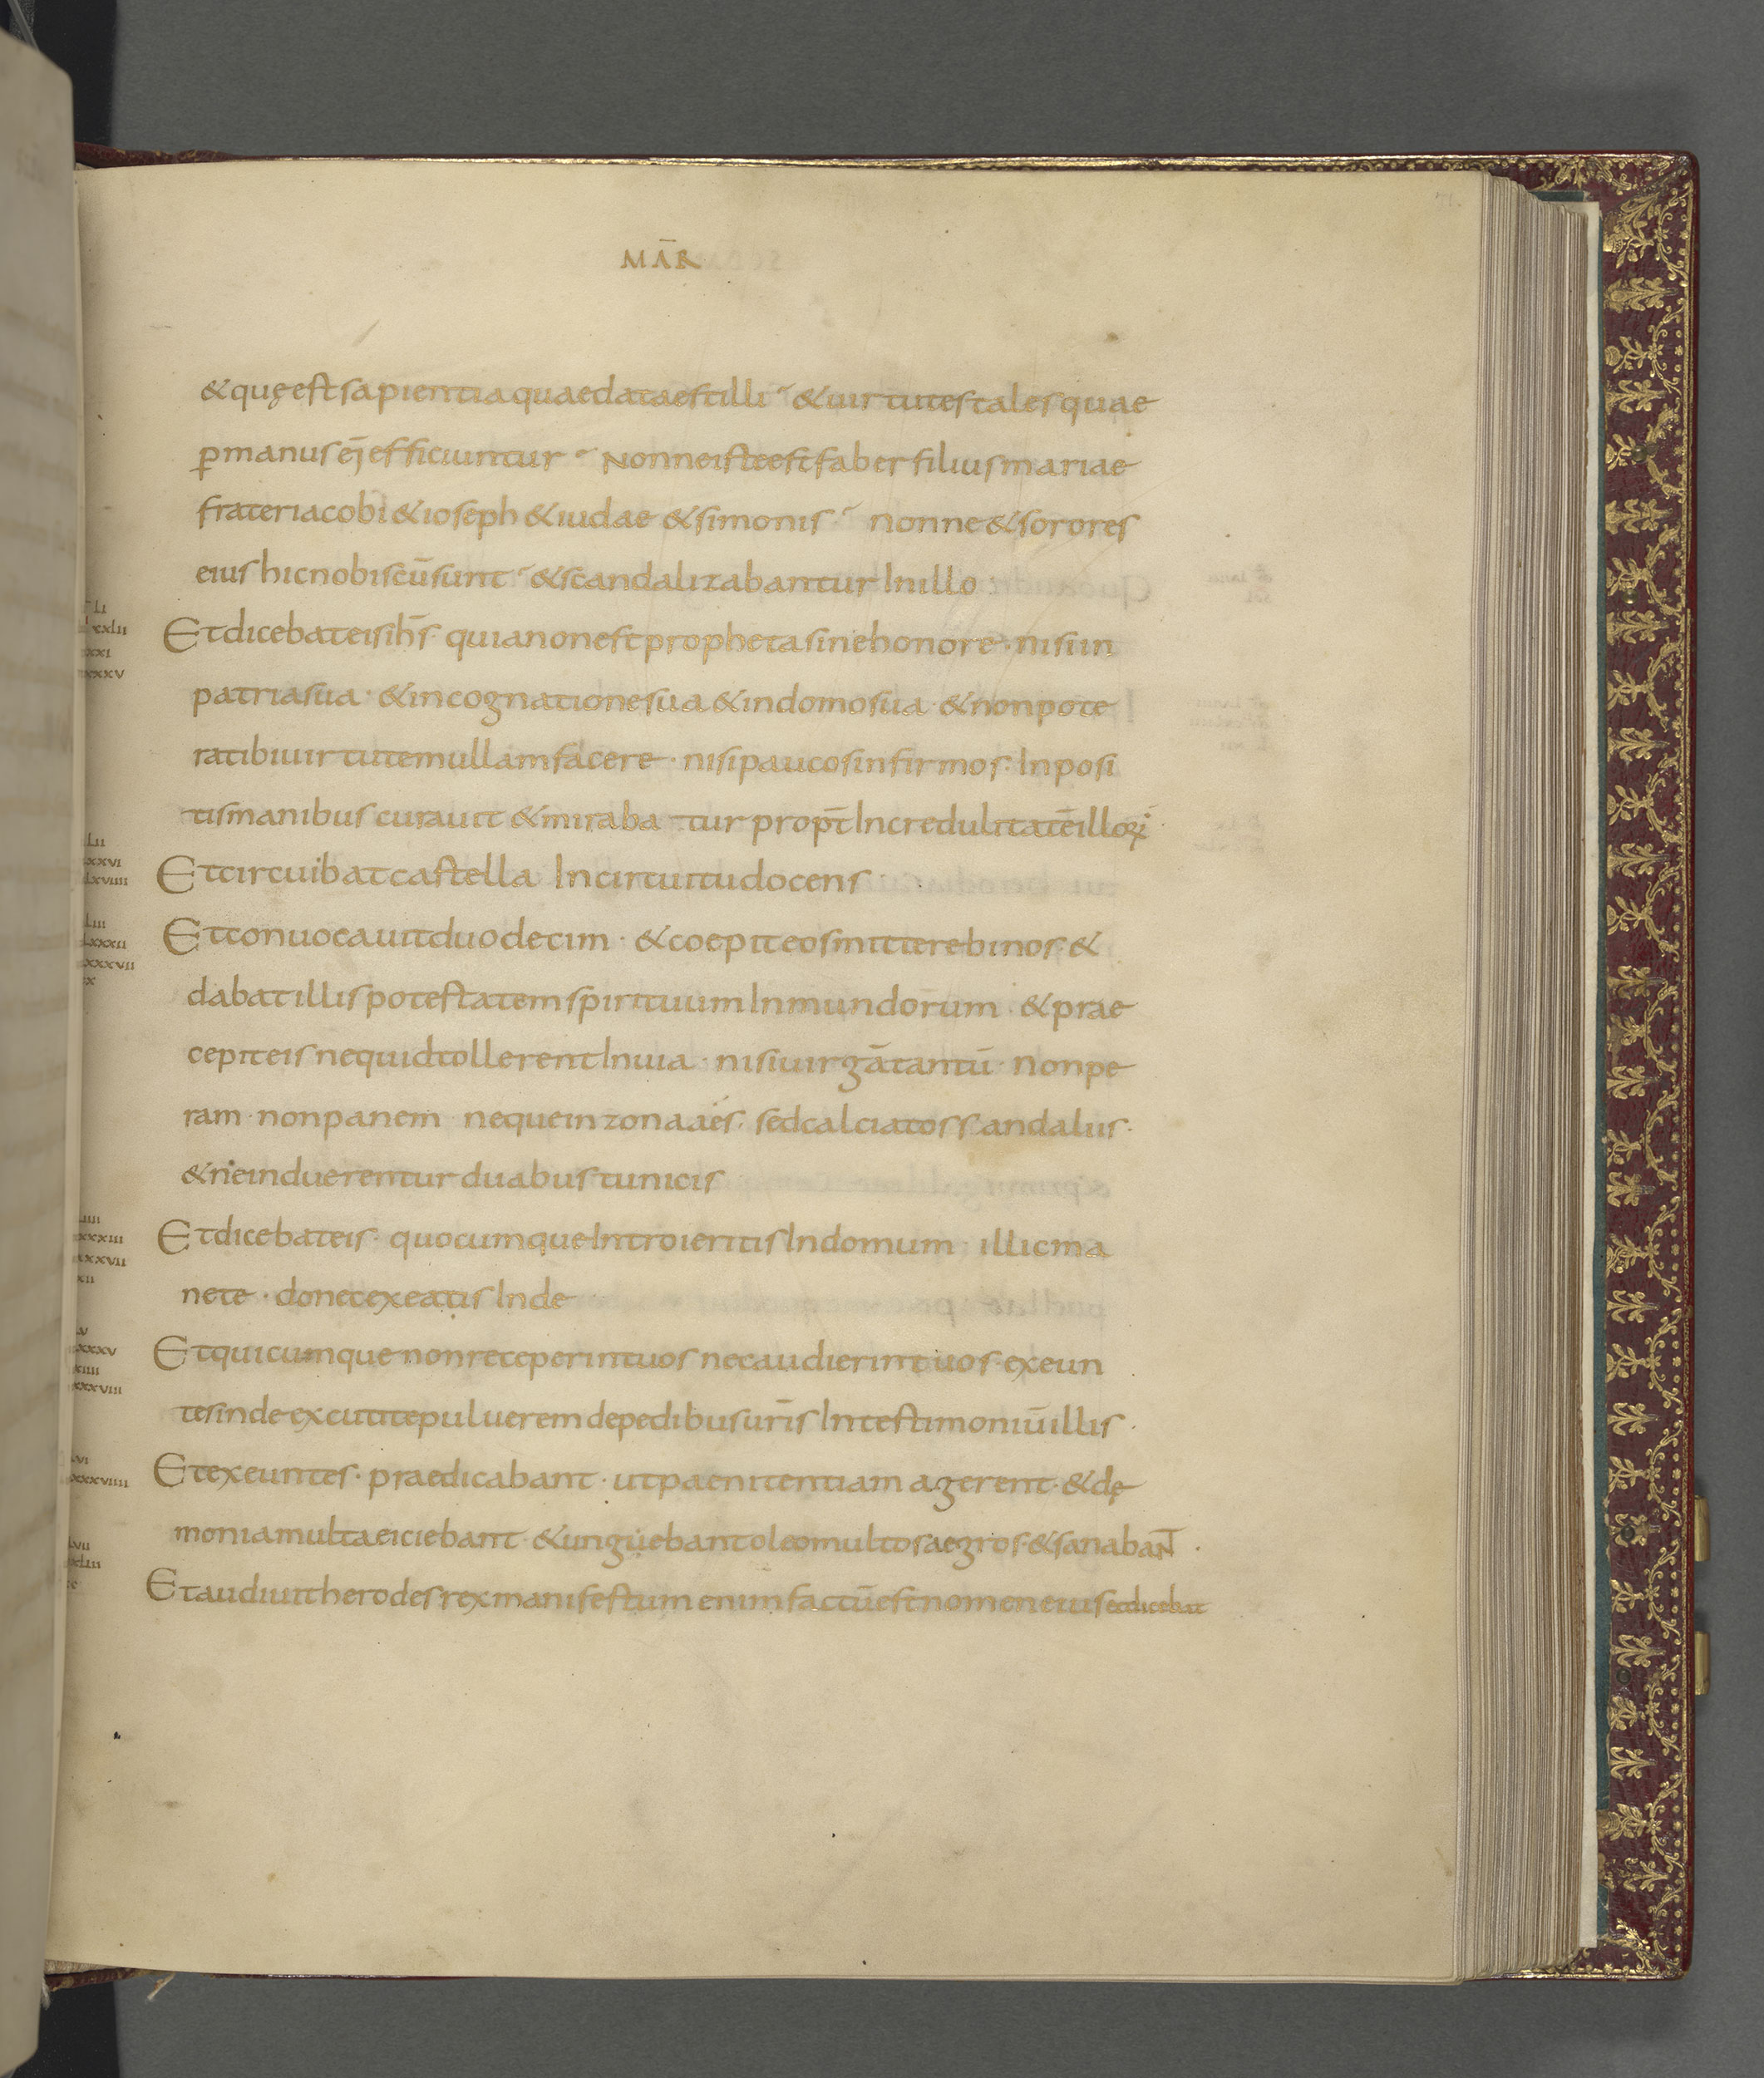 MAR̅
& quę est sapientia quae data est illi & uirtutes tales quae
ꝑ manus eị efficiuntur Nonne iste est faber filius mariae
frater iacobi & ioseph & iudae & simonis · nonne & sorores
eius hic nobiscū sunt & scandalizabantur In illo
Et dicebat eis ih̅s · quia non est propheta sine honore · nisi in
patria sua · & in cognatione sua & in domo sua · & non pote
rat ibi uirtutem ullam facere · nisi paucos infirmos · Inposi
tis manibus curauit & miraba tur propt̅ Incredulitatē illoꝝ
Et circuibat castella In circuitu docens
Et conuocauit duodecim · & coepit eos mittere binos · &
dabat illis potestatem spirituum Inmundorum · & prae
cepit eis ne quid tollerent In uia · nisi uirgā tantū · Non pe
ram · non panem neque in zona aes · sed calciatos sandaliis ·
& ne induerentur duabus tunicis
Et dicebat eis · quocumque Introieritis In domum · illic ma
nete · donec exeatis Inde
Et quicumque non receperint uos nec audierint uos · exeun
tes inde excutite puluerem de pedibus ur̅is In testimoniū illis ·
Et exeuntes · praedicabant · ut paenitentiam agerent · & dę
monia multa eiciebant · & unguebant oleo multos aegros · & sanabaN̅T ·
Et audiuit herodes rex manifestum enim factū est nomen eius et dicebat
LI
xxlii
xxi
xxxv
LII
xxvi
Lxviiii
Liii
Lxxxii
xxxvii
x
Liiii
xxxiii
xxxvii
xii
Lv
xxxv
xiiii
xxxviii
Lvi
xxxviiii
Lvii
xliii